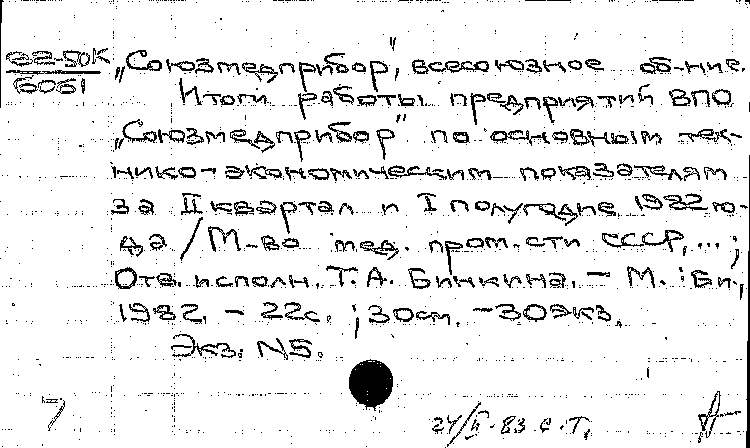 Э2-50К
6061
„Союзмедприбор", всесоюзное об-ние.
Итоги работы предприятий ВПО
„Союзмедприбор" по основным тех-
нико-экономическим показателям
за II квартал и I полугодие 1982 го-
да / М-во мед. пром-сти СССР,...;
Отв. исполн. Т.А. Бинкина. - М.: Би.,
1982. - 22с. ; 30см. - 30экз.
Экз. N5.
7
24/II-83 С.Т.